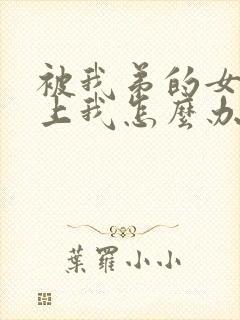 被我弟的女
上我怎麼办
葉羅小小